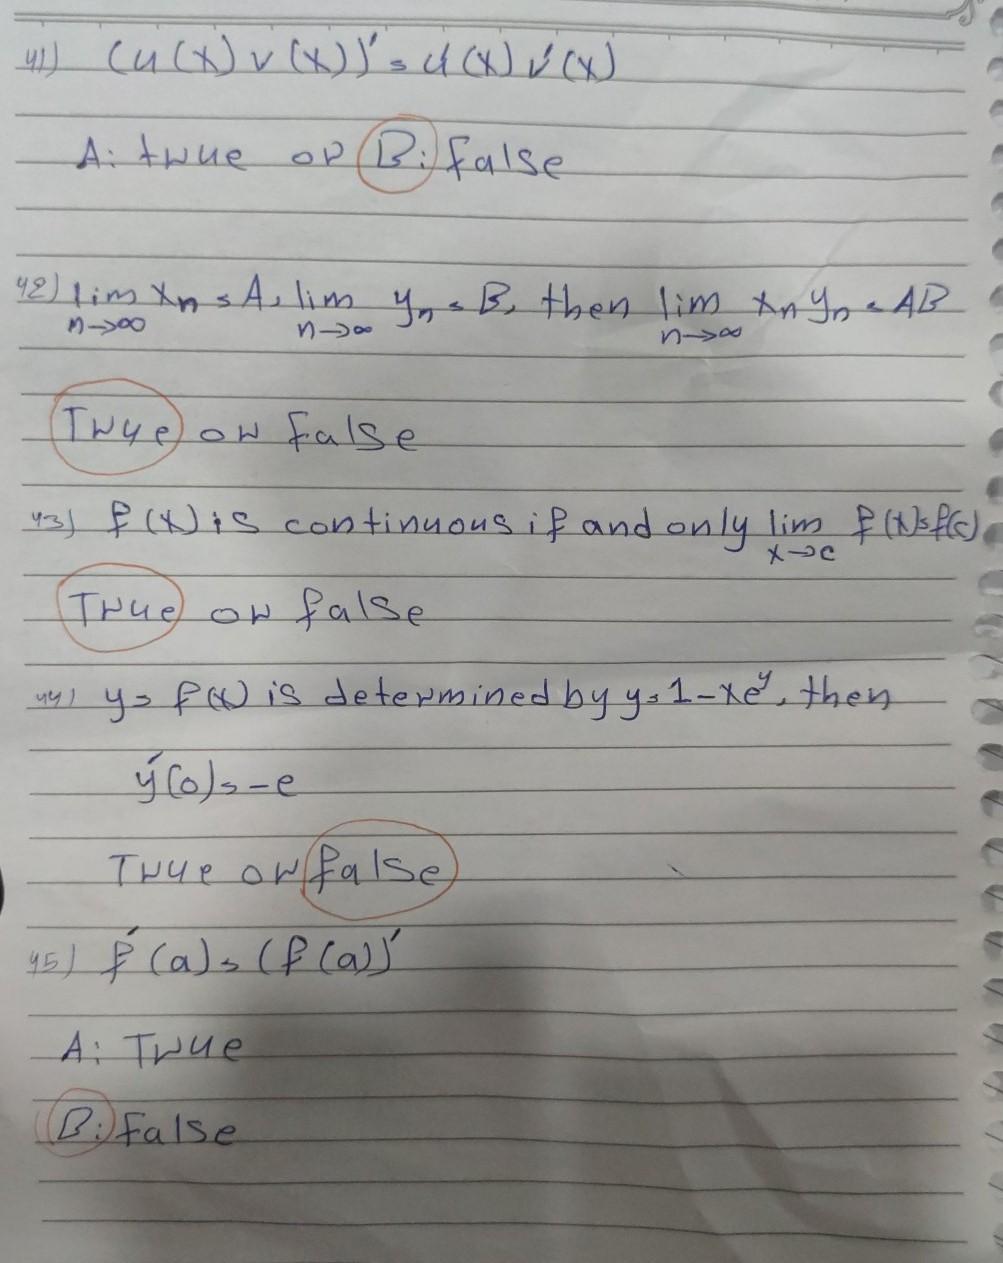 41) (u(x)v(x))' = u'(x)v'(x)
A: true or B: false
42) lim xn = A, lim yn = B, then lim xn yn = AB
n→∞ n→∞ n→∞
True or false
43) f(x) is continuous if and only lim f(x)=f(c)
x→c
True or false
44) y= f(x) is determined by y=1-xe^y, then
y'(0)=-e
True or false
45) f'(a)=(f(a))'
A: True
B: false